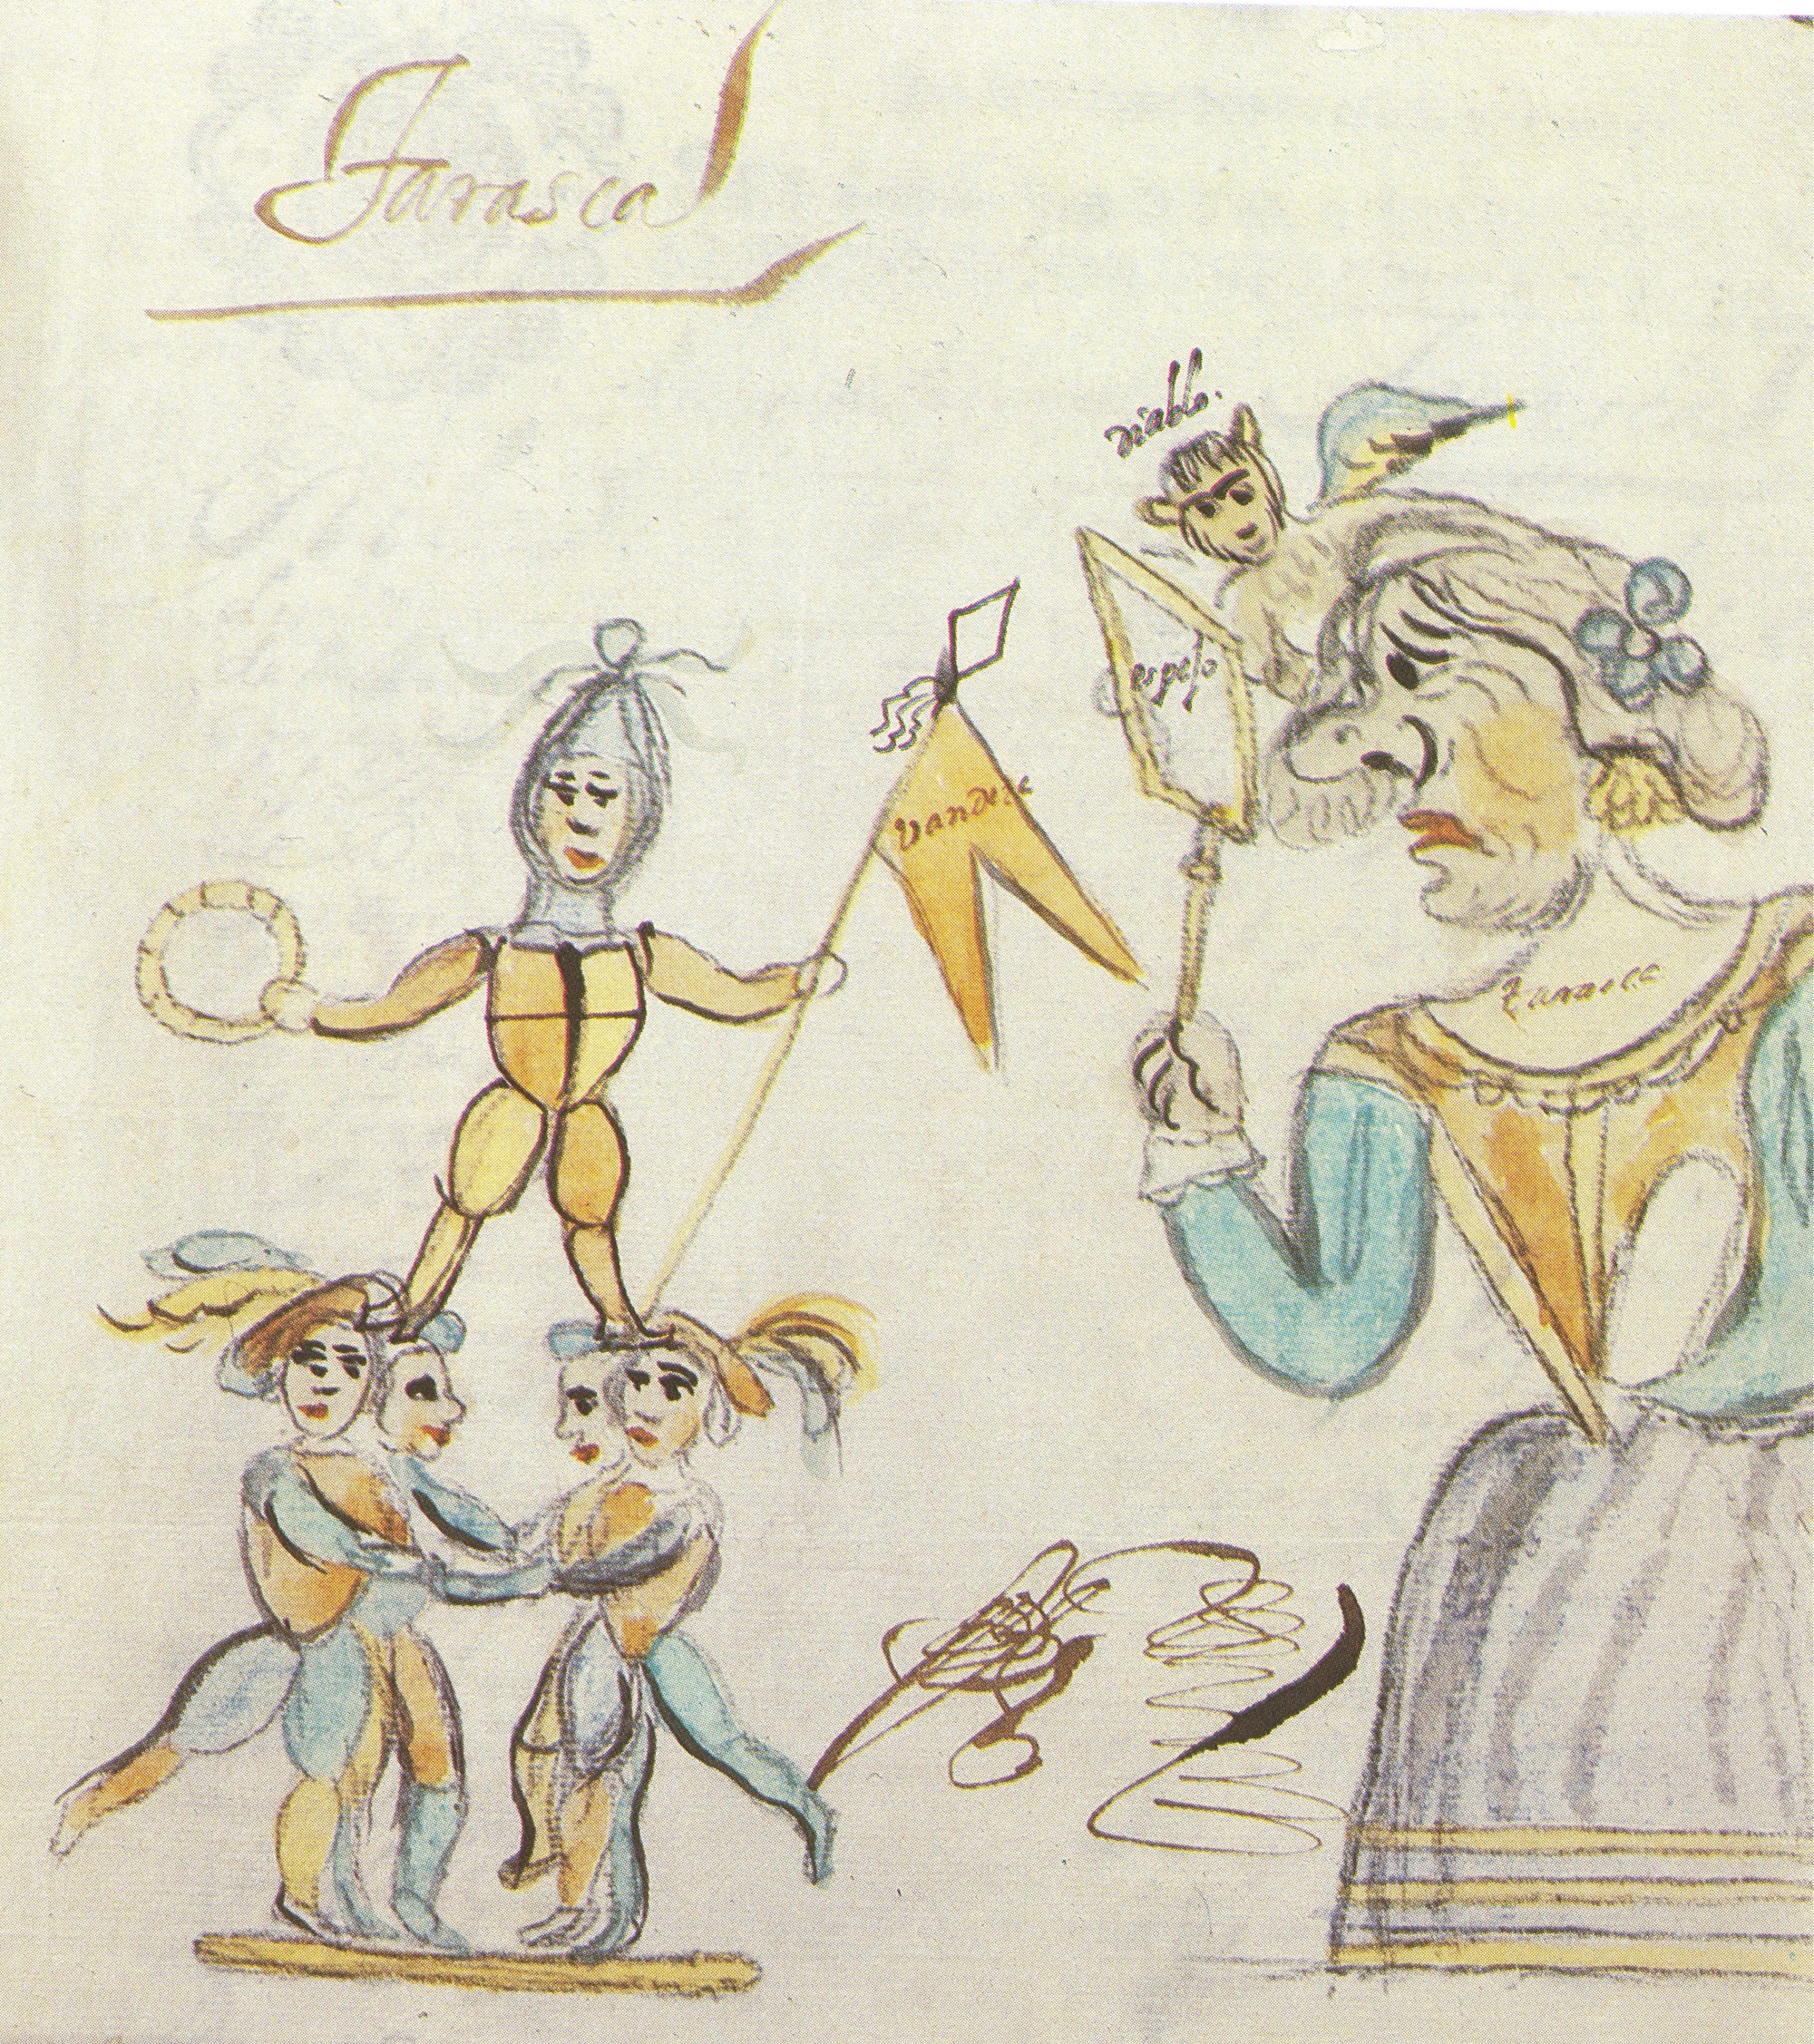 Tarasca
diablo.
espejo
vandera
tarasca